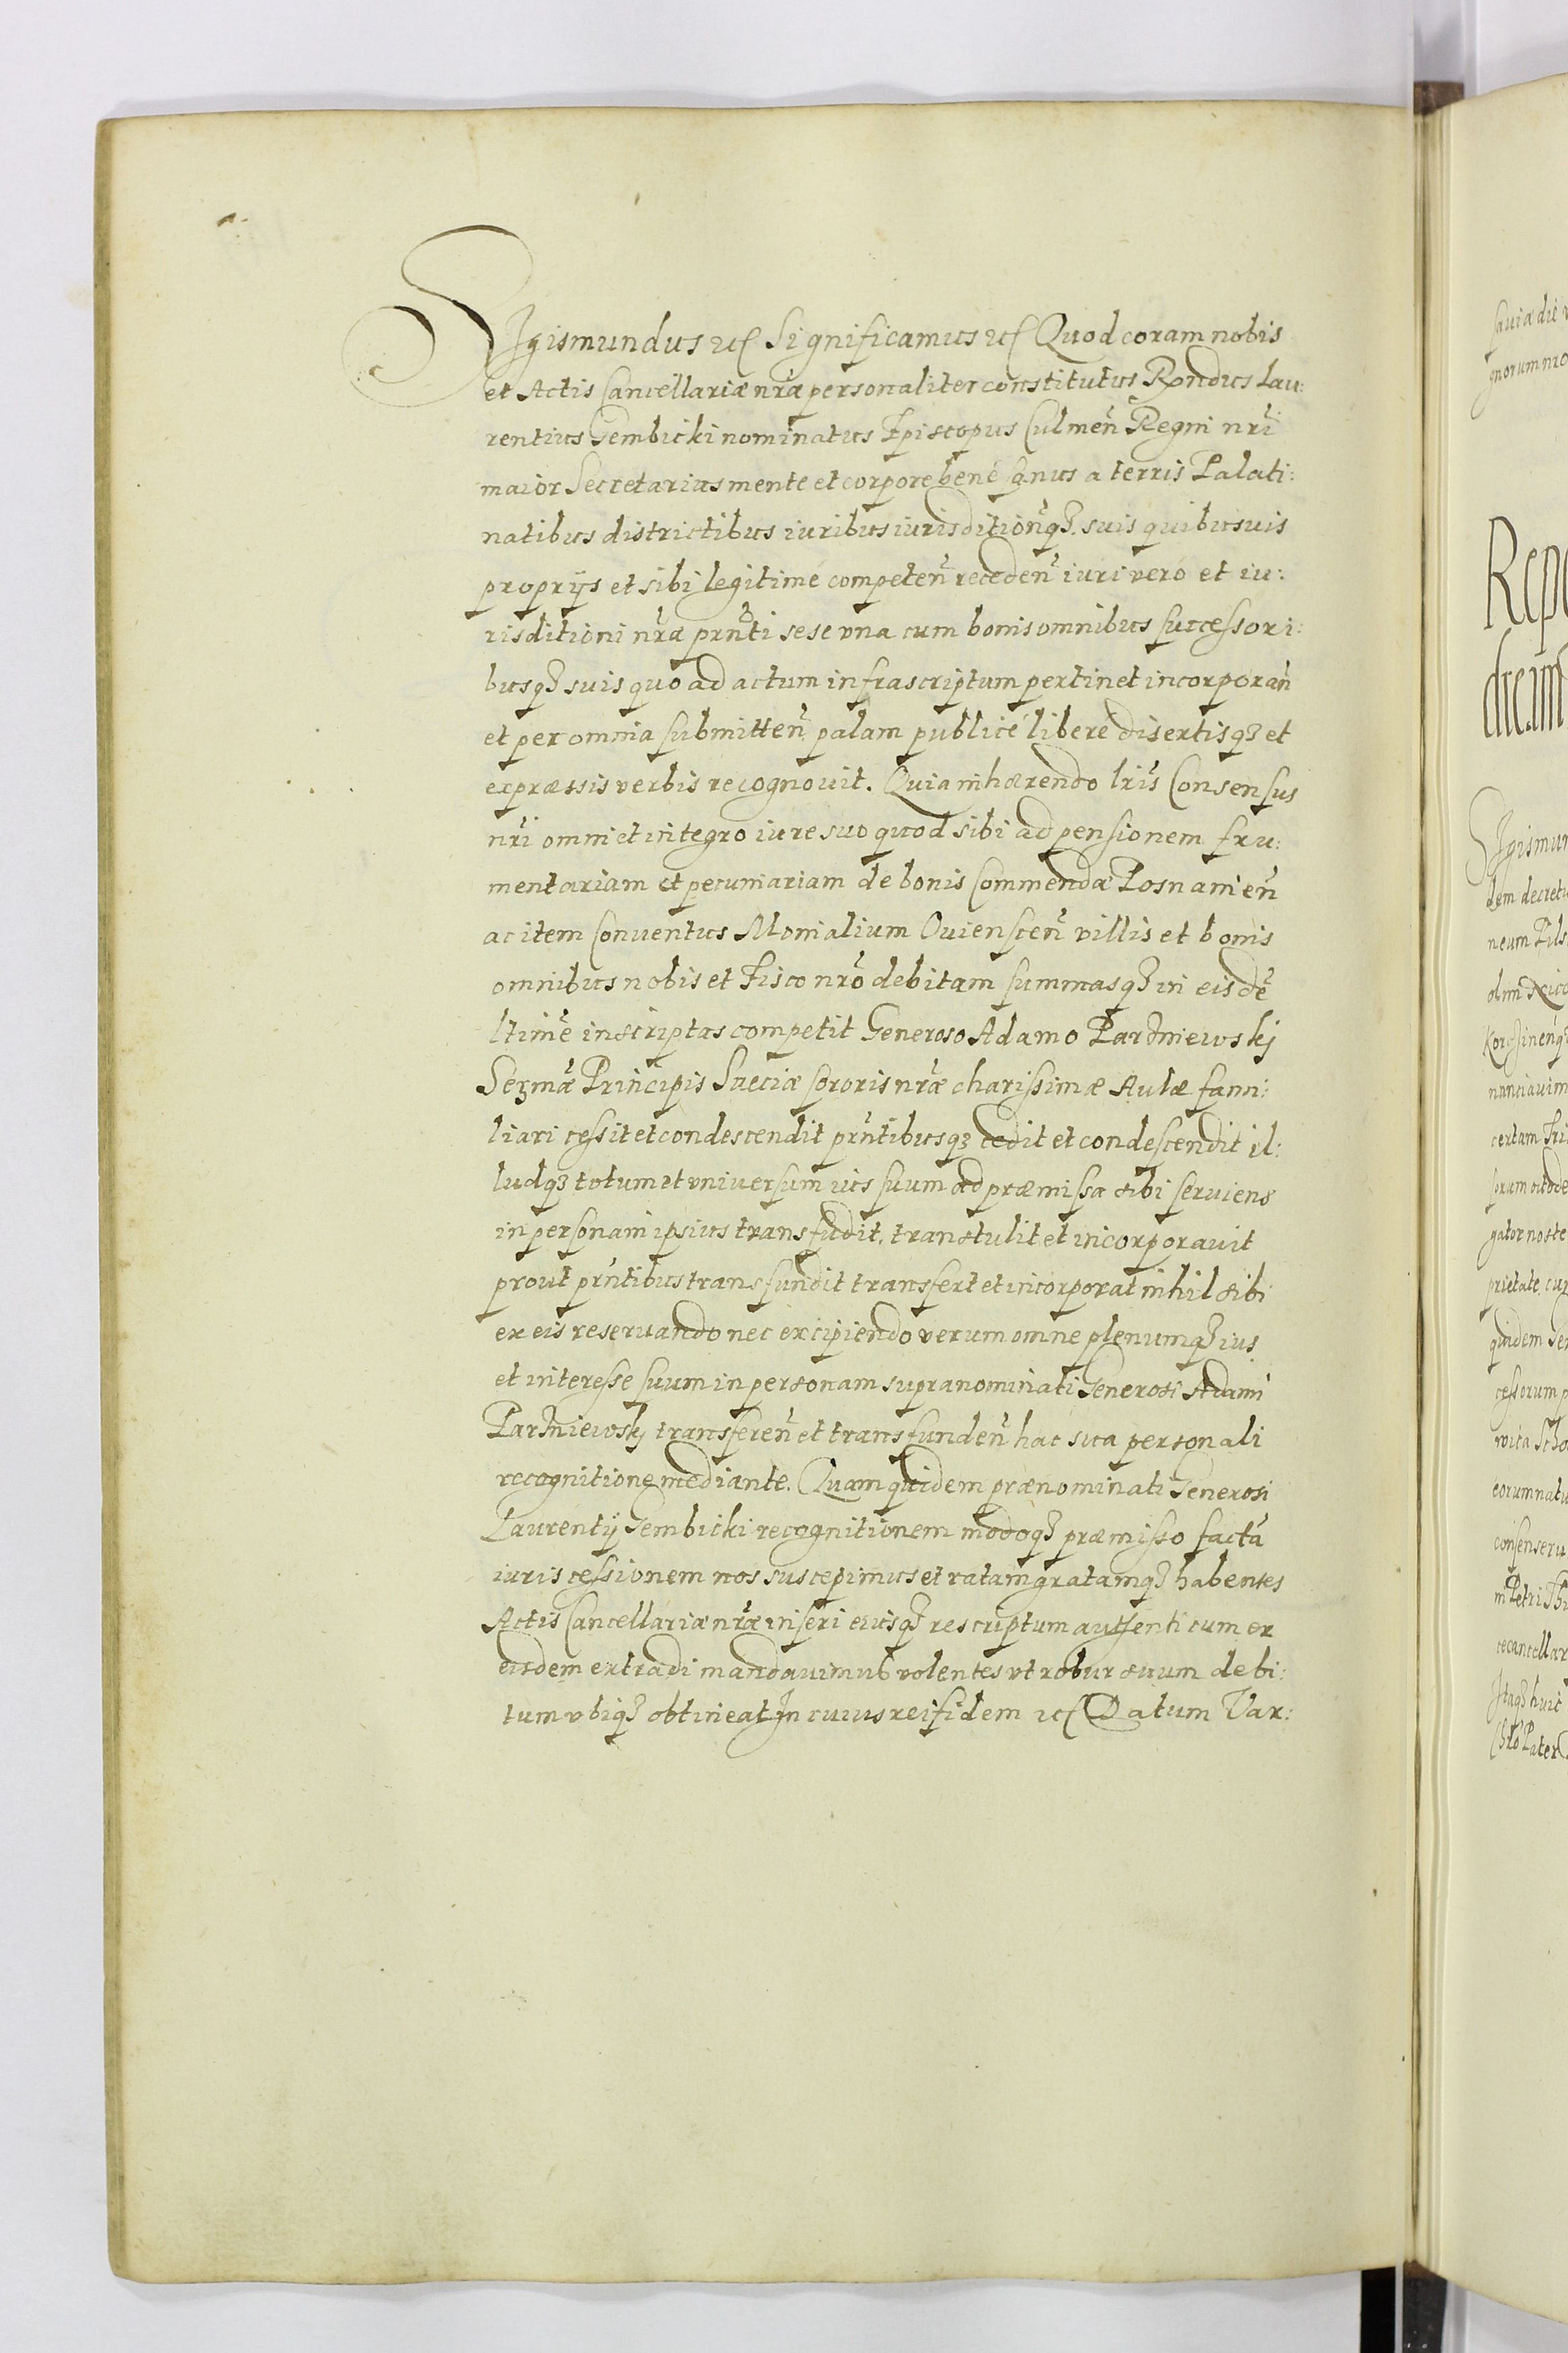 SIgismundus etc Significamus etc Quod coram nobis
et Actis Cancellariæ nrae personaliter constitutus Rǹdus Lau:
rentius Gembicki nominatus Episcopus Culmen̄ Regni nr̄i
maior Secretarius mente et corpore bene sanus a terris Palati:
natibus districtibus iuribus iurisdition̄q3 suis quibusuis
proprijs et sibi legitimé competen̄ receden̄ iuri vero et iu:
risditioni nr̄æ prn̄ti sese vna cum bonis omnibus successori:
busq3 suis quo ad actum infrascriptum pertinet incorporan̄
et per omnia submitten̄ palam publicé liberé disertisq3 et
expræssis verbis recognouit. Quia inhærendo lr̄is Consensus
nr̄i omni et integro iure suo quod sibi ad pensionem fru:
mentariam et pecuniariam de bonis Commendæ Posnanien̄
ac item Conuentus Monialium Ouienscen̄ villis et bonis
omnibus nobis et Fisco nr̄o debitam summasq3 in eisdē
ltimē inscriptas competit Generoso Adamo Partniewskj
Serm̄æ Principis Sueciæ sororis nr̄æ charissimæ Aulæ fami:
liari cessit et condescendit prn̄tibusq3 cedit et condescendit il:
ludq3 totum et vniuersum ius suum ad præmissa sibi seruiens
in personam ipsius transfudit, transtulit et incorporauit
prout prn̄tibus transfundit transfert et incorporat nihil sibi
ex eis reseruando nec excipiendo verum omne plenumq3 ius
et interesse suum in personam supranominati Generosi Adami
Partniewskj transferen̄ et transfunden̄ hac sua personali
recognitione mediante. Quam quidem prænominati Generosi
Laurentij Gembicki recognitionem modoq3 præmisso factā
iuris cessionem nos suscepimus et ratam gratamq3 habentes
Actis Cancellariæ nr̄æ inseri eiusq3 rescriptum authenticum ex
eisdem extradi mandauimus volentes vt robur suum debi:
tum vbiq3 obtineat In cuius rei fidem etc Datum Var: